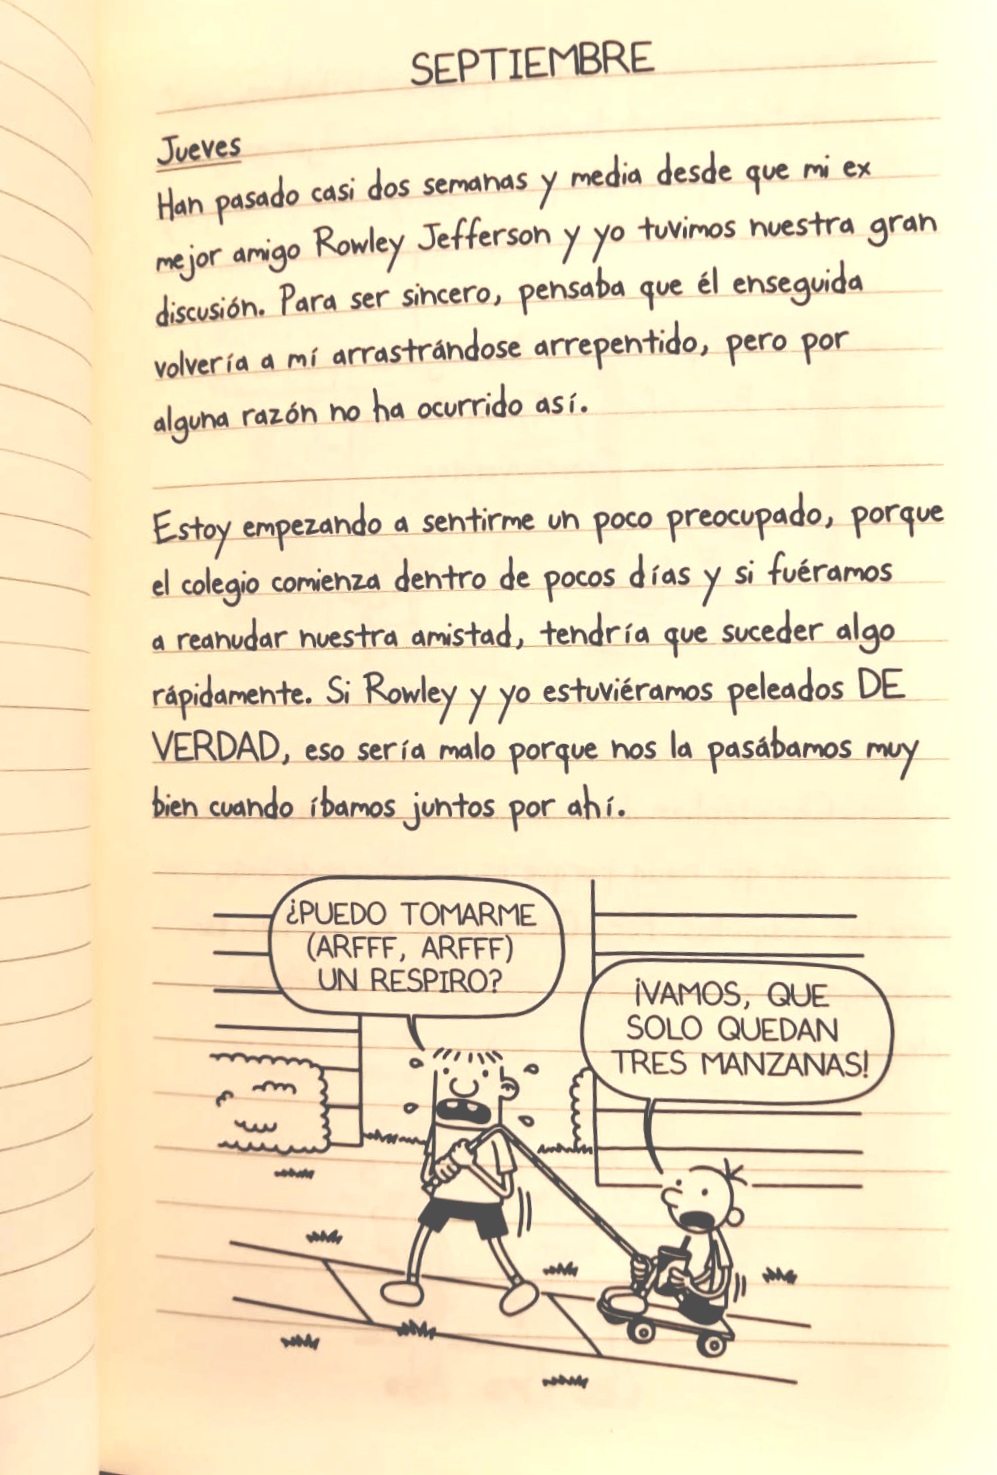 SEPTIEMBRE
Jueves
Han pasado casi dos semanas y media desde que mi ex
mejor amigo Rowley Jefferson y yo tuvimos nuestra gran
discusión. Para ser sincero, pensaba que él enseguida
volvería a mí arrastrándose arrepentido, pero por
alguna razón no ha ocurrido así.
Estoy empezando a sentirme un poco preocupado, porque
el colegio comienza dentro de pocos días y si fuéramos
a reanudar nuestra amistad, tendría que suceder algo
rápidamente. Si Rowley y yo estuviéramos peleados DE
VERDAD, eso sería malo porque nos la pasábamos muy
bien cuando íbamos juntos por ahí.
¿PUEDO TOMARME
(ARFFF, ARFFF)
UN RESPIRO?
¡VAMOS, QUE
SOLO QUEDAN
TRES MANZANAS!